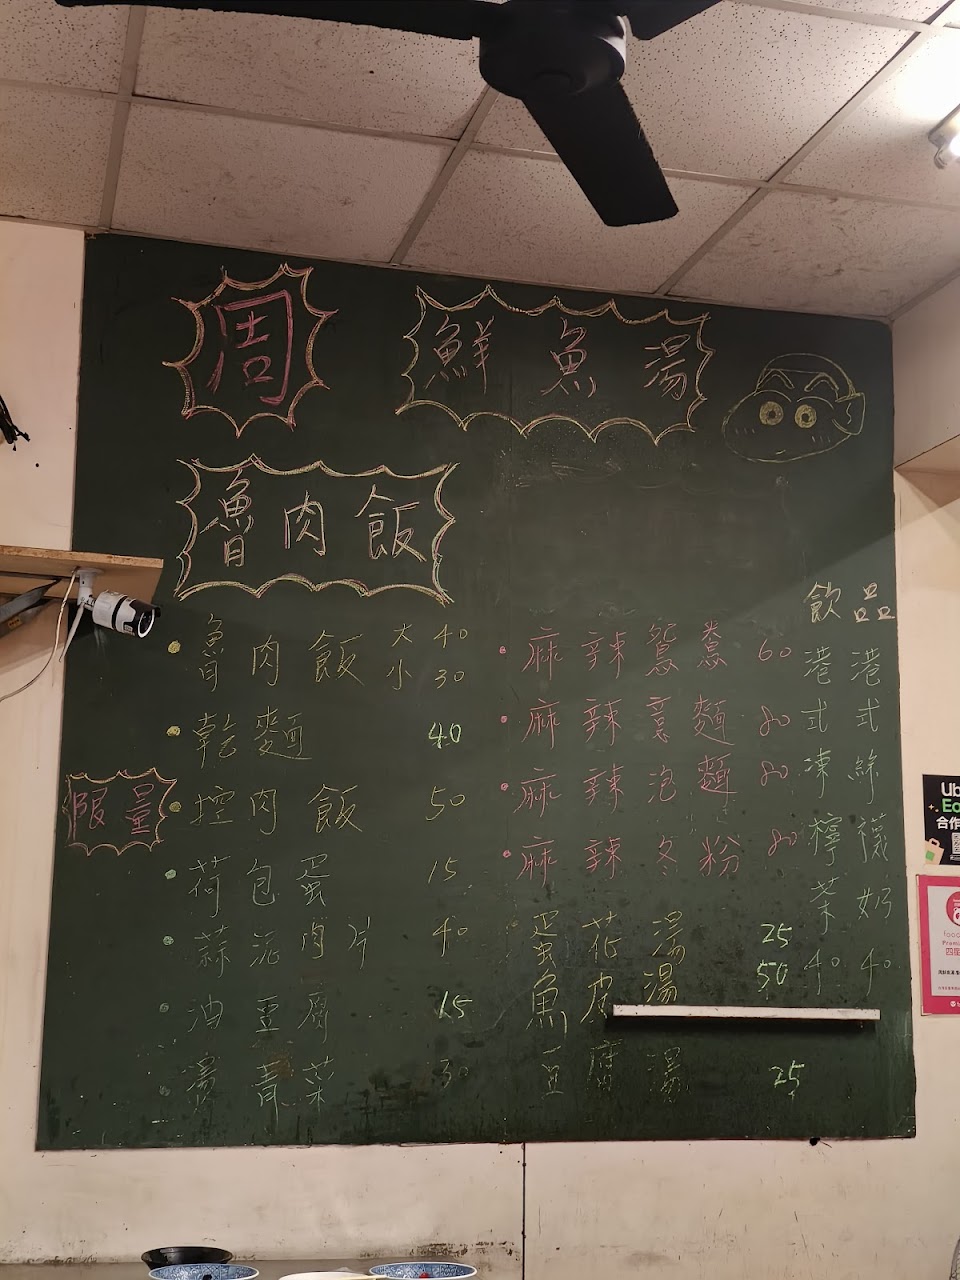 周
鮮魚湯
魯肉飯
魯肉飯 大 40
小 30
乾麵 40
限量
控肉飯 50
荷包蛋 15
蒜泥肉片 40
油豆腐 15
燙青菜 30
麻辣鴛鴦 60
麻辣意麵 80
麻辣泡麵 80
麻辣冬粉 80
蛋花湯 25
魚皮湯 50
豆腐湯 25
飲品
港式凍檸茶 40
港式絲襪奶 40
合作